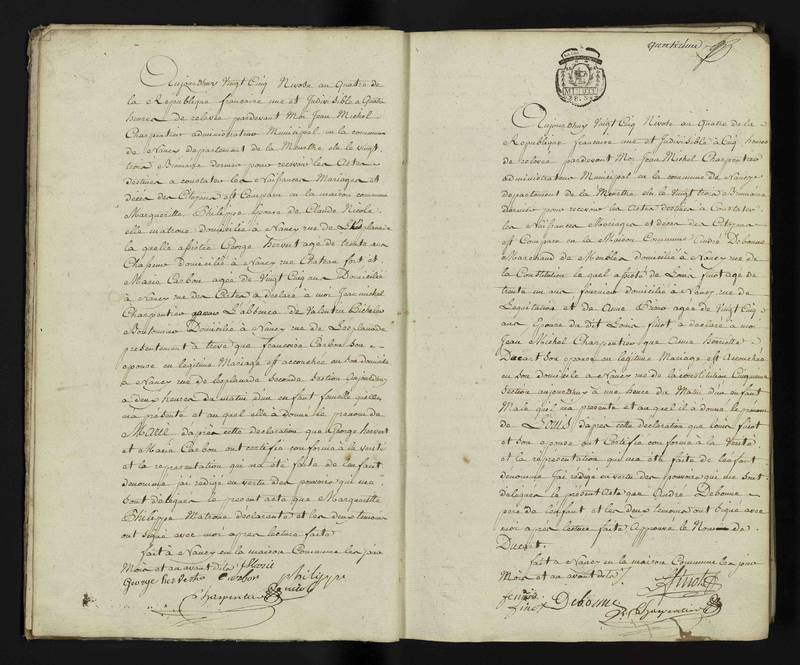 Aujourdhuy Vingt Cinq Nivose an Quatre de
la République francaise une et Indivisible a Quatre
heures de relevée pardevant Moi Jean Michel
Charpentier administrateur Municipal en la commune
de Nancy departement de la Meurthe elu le vingt
trois Brumaire dernier pour recevoir les Actes
destinés a constater les Naissances Mariages et
deces des Citoyens est Comparu en la maison commune
Margueritte Philippe Epouse de Claude Nicole
elle matrone domiciliée à Nancy rue de Lesplanade
la quelle assistée George hervert age de trente ans
Chasseur Domicilié à Nancy rue Chateau fort et
Maria Carbon agée de Vingt Cinq ans Domiciliée
à Nancy rue des a declaré a moi Jean michel
Charpentier L'absence de Valentin
Boutonnier Domicilié à Nancy rue de Lesplanade
presentement a que francoise Carbon son e
epouse en legitime Mariage est accouchée en son domicile
à Nancy rue de lesplanade Seconde Section aujourdhuy
a deux heures du matin dun enfant femelle quelle
ma présenté et au quel elle à donné le prenom de
Marie daprés cette declaration que George hervert
et Maria Carbon ont certifié conforme à la verité
et la representation qui ma été faite de lenfant
denommé jai rédigé en vertu des pouvoirs qui me
sont délégués le present acte que Margueritte
Philippe Matrone déclarante et les deux temoins
ont signé avec moi apres lecture faite
fait à Nancy en la maison Commune les jour
Mois et an avant dits Marie
George Carbon philippe
Charpentier nicol
quatrième
Aujourdhuy Vingt Cinq Nivose an Quatre de la
République francaise une et Indivisible à Cinq heures
de relevée pardevant Moi Jean Michel Charpentier
administrateur Municipal en la commune de Nancy
departement de la Meurthe elu le Vingt trois Brumaire
dernier pour recevoir les Actes destinés à Constater
les Naissances Mariages et deces des Citoyens
est Comparu en la Maison Commune André Debonne
Marchand de Meubles domicilié à Nancy rue de
la Constitution le quel assisté de Louis finot age de
trente un ans domicilié à Nancy rue de
Legislation et de Anne agée de Vingt Cinq
ans Epouse du dit Louis finot a declaré a moi
Jean Michel Charpentier que Anne henriette
Ducret son epouse en légitime Mariage est Accouchée
en son domicile a Nancy rue de la constitution Cinquieme
Section aujourdhuy à une heure du Matin dun enfant
Male qui ma presenté et au quel il a donné le prenom
de Louis daprés cette declaration que Louis finot
et son epouse ont Certifié conforme à la Verité
et la représentation qui ma été faite de lenfant
denommé jai rédigé en vertu des pouvoirs qui me sont
délégués le présent Acte que André Debonne
pere de lenfant et les deux temoins ont signé avec
moi apres lecture faite Approuvé le Nom de
Ducret.
fait à Nancy en la maison Commune les jour
Mois et an avant dits
finot
finot Debonne Charpentier